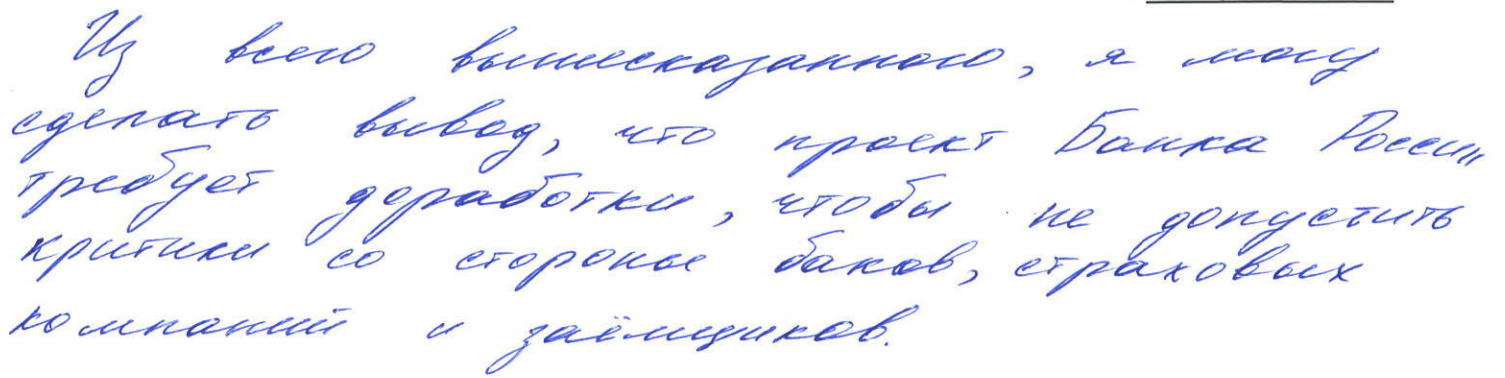 Из всего вышесказанного, я могу
сделать вывод, что проект Банка России
требует доработки, чтобы не допустить
критики со стороны баков, страховых
компаний и заёмщиков.